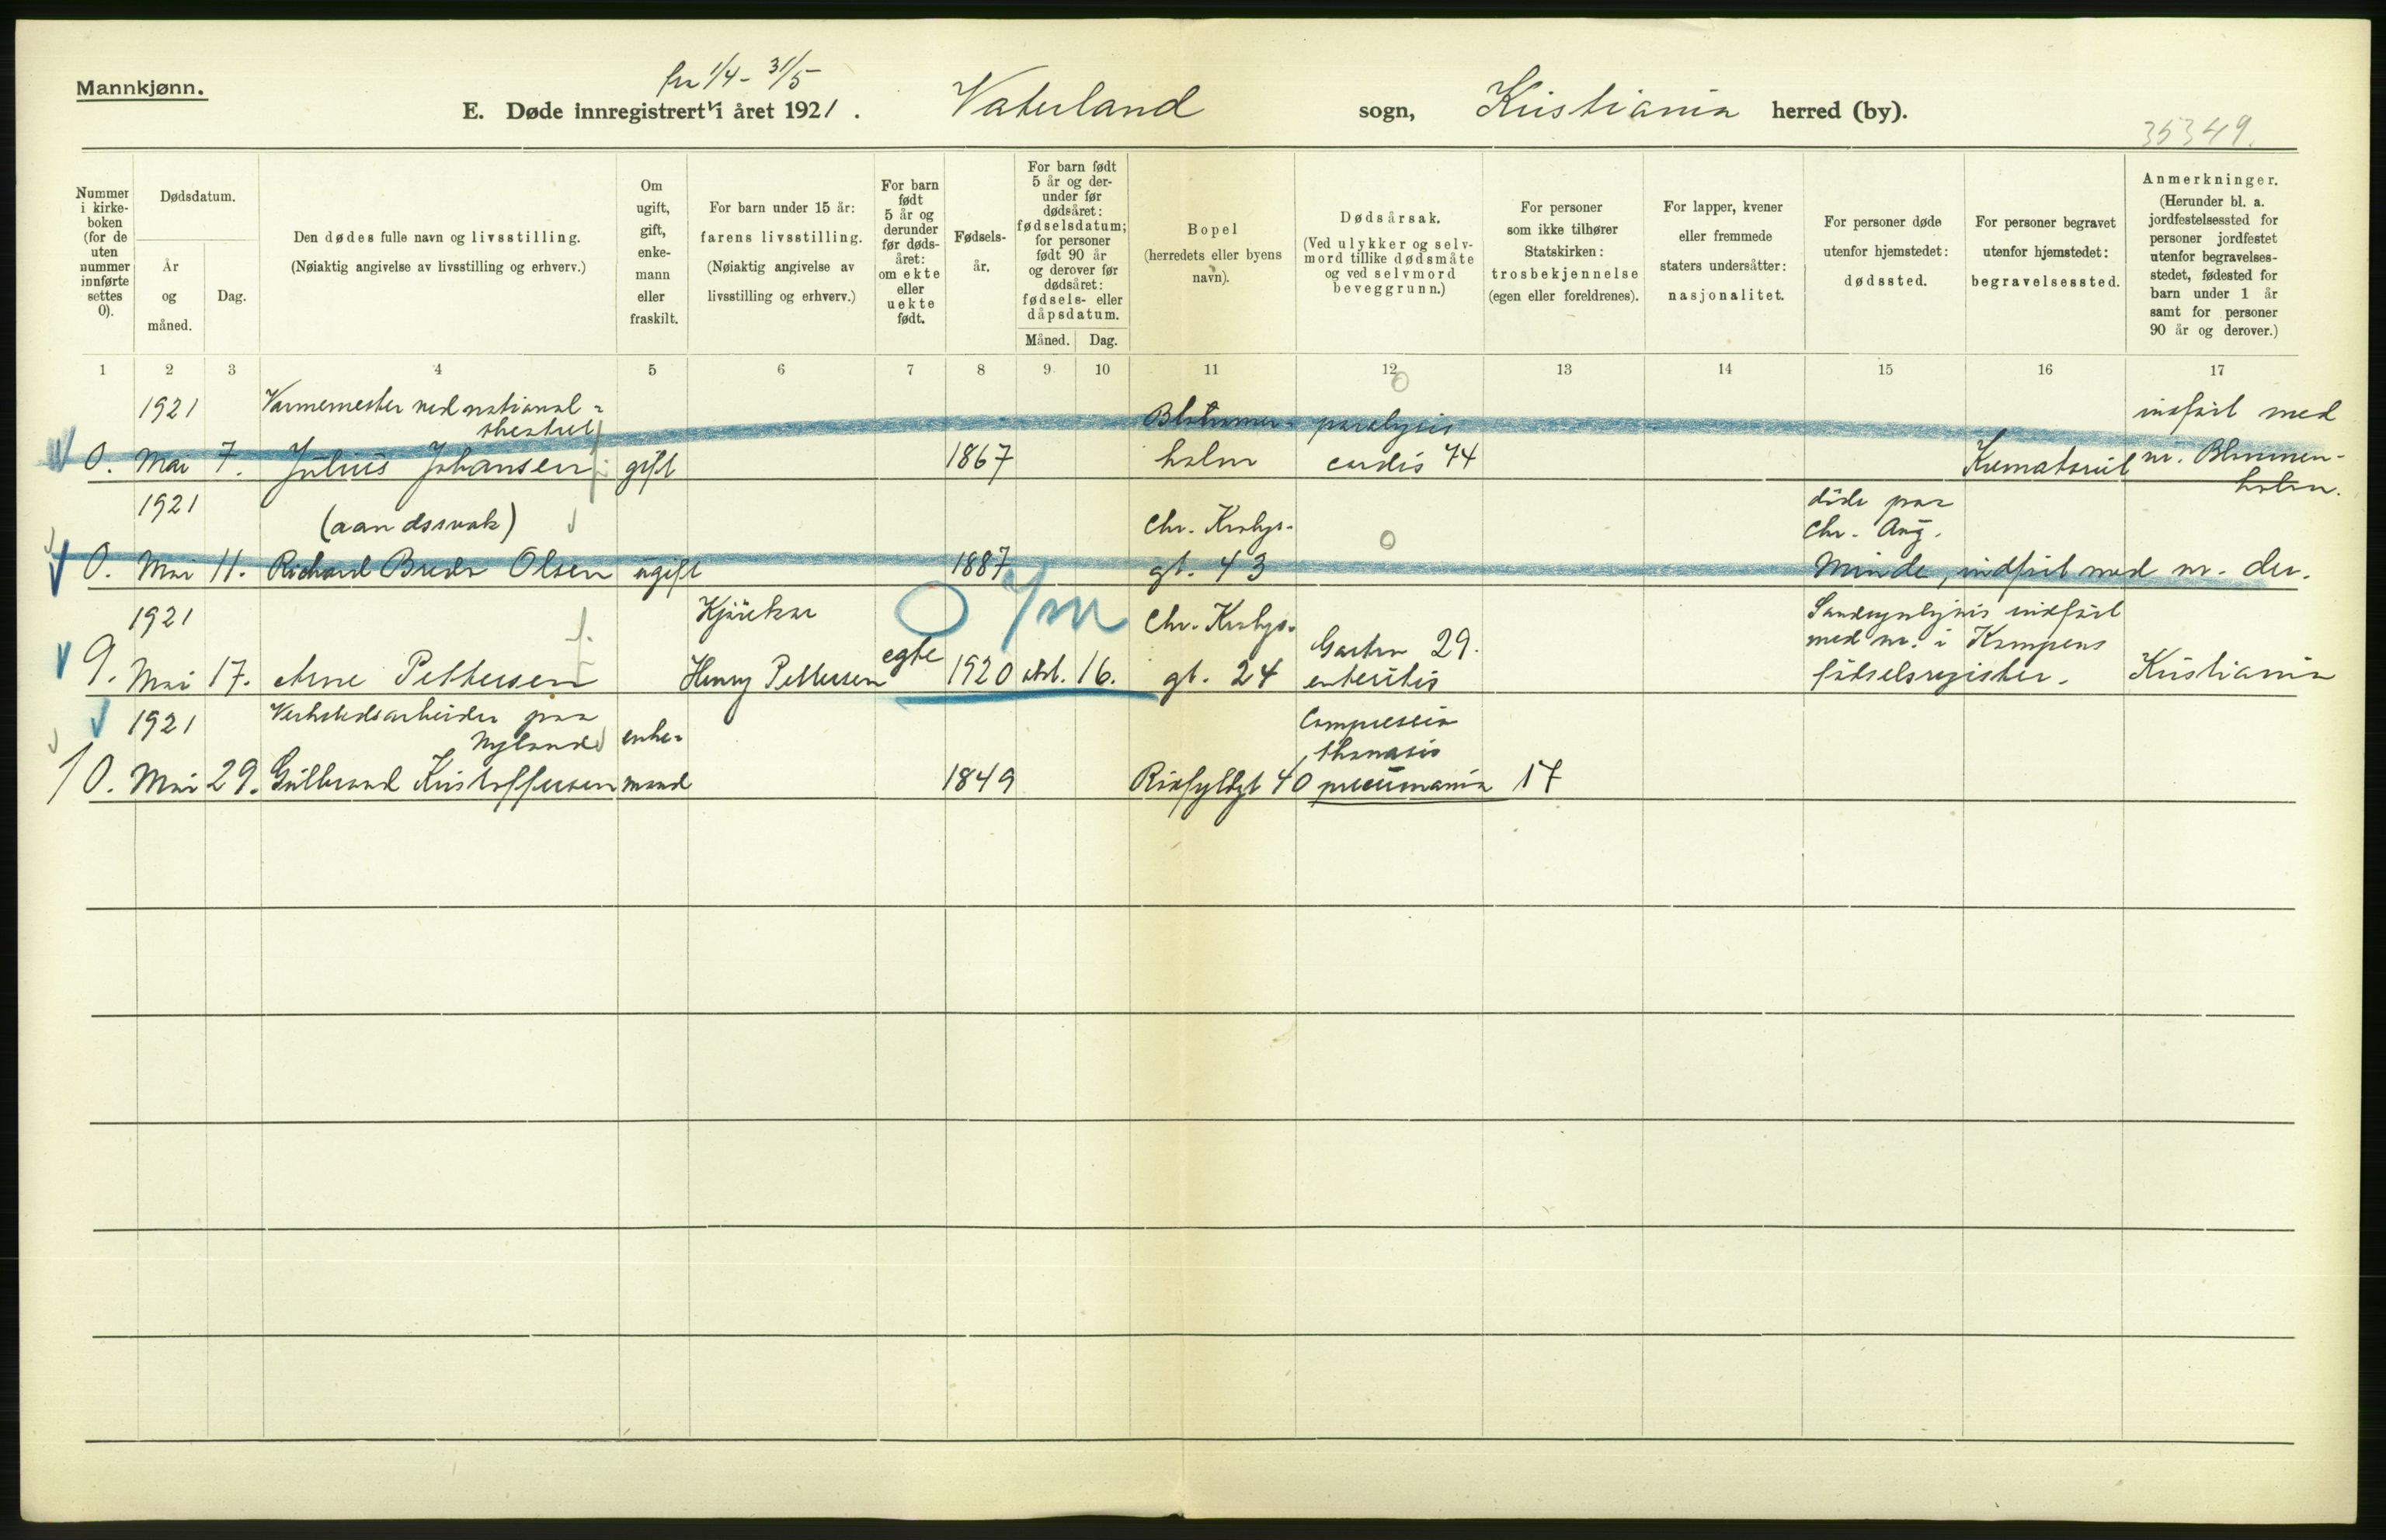 Mannkjønn.
fra 1/4 - 31/5
E. Døde innregistrert i året 1921. Vaterland sogn, Kristiania herred (by).
35349.
Nummer i kirke-boken (for de uten nummer innførte settes 0).
Dødsdatum.
År og måned.
Dag.
Den dødes fulle navn og livsstilling.
(Nøiaktig angivelse av livsstilling og erhverv.)
Om ugift, gift, enke-mann eller fraskilt.
For barn under 15 år:
farens livsstilling.
(Nøiaktig angivelse av livsstilling og erhverv.)
For barn født 5 år og derunder før døds-året: om ekte eller uekte født.
Fødsels-år.
For barn født 5 år og der-under før dødsåret: fødselsdatum; for personer født 90 år og derover før dødsåret: fødsels- eller dåpsdatum.
Måned. Dag.
Bopel
(herredets eller byens navn).
Dødsårsak.
(Ved ulykker og selv-mord tillike dødsmåte og ved selvmord beveggrunn.)
For personer som ikke tilhører Statskirken: trosbekjennelse (egen eller foreldrenes).
For lapper, kvener eller fremmede staters undersåtter: nasjonalitet.
For personer døde utenfor hjemstedet: dødssted.
For personer begravet utenfor hjemstedet: begravelsessted.
Anmerkninger.
(Herunder bl. a. jordfestelsessted for personer jordfestet utenfor begravelses-stedet, fødested for barn under 1 år samt for personer 90 år og derover.)
1 2 3 4 5 6 7 8 9 10 11 12 13 14 15 16 17
1921 Varmemester ved national=
theatret
Blommen- paralysis 0 indført med
0. Mai 7. Julius Johansen gift 1867 holm cordis 74 Krematoriet nr. Blommen-
holm.
1921 (aandssvak) Chr. Krohgs- 0 døde paa
Chr. Aug.
0. Mai 11. Richard Breda Olsen ugift 1887 gt. 43 Minde, indført med nr. der.
0 7/m
1921 Kjørekar Chr. Krohgs- Gastro 29. Sandsynligvis indført
med nr. i Kampens
9. Mai 17. Arne Pettersen Henry Pettersen egte 1920 okt. 16. gt. 24 enteritis fødselsregister. Kristiania
1921 Verkstedsarbeider paa
Nyland enke= Compressio
thoracis
10. Mai 29. Gulbrand Kristoffersen mand 1849 40 pneumonia 17